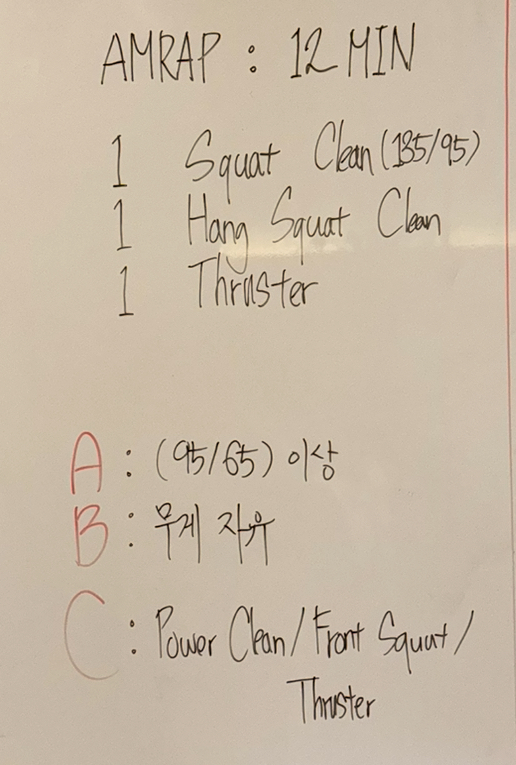 AMRAP : 12 MIN
1 Squat Clean (135/95)
1 Hang Squat Clean
1 Thruster
A : (95/65) 이상
B : 무게 자유
C : Power Clean / Front Squat /
Thruster